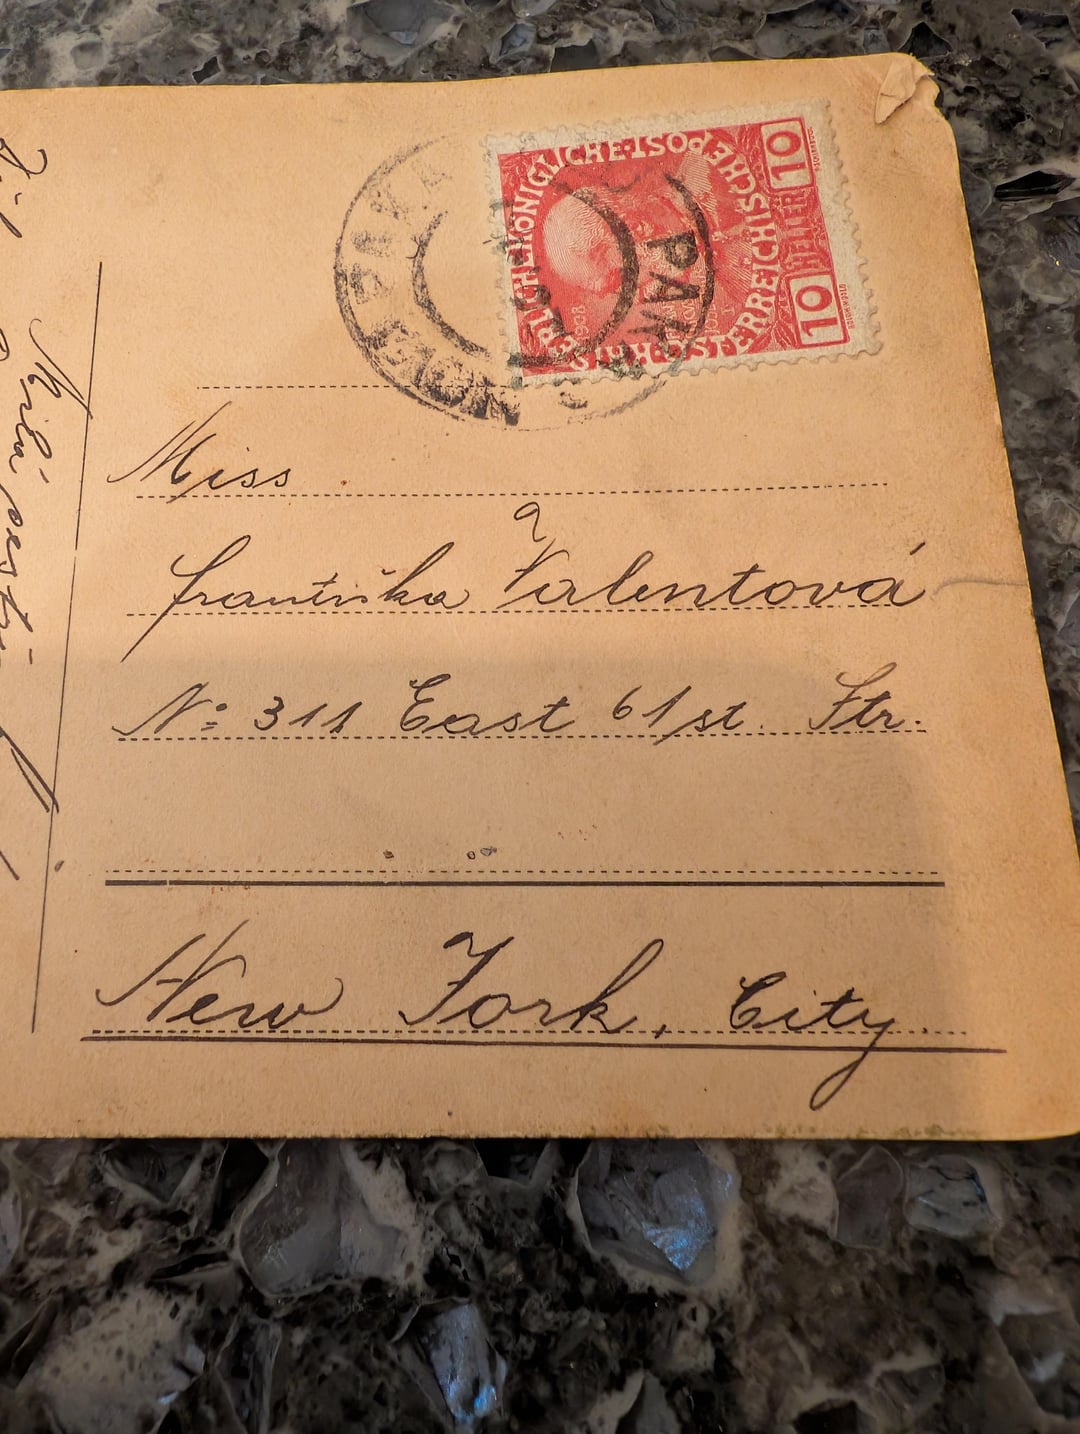 KAISERLICHE KÖNIGLICHE ÖSTERREICHISCHE POST
10 HELLER 10
1908
NOVÁ PAKA
Miss
Františka Valentová
No: 311 East 61st. Str.
New York, City.
Milá